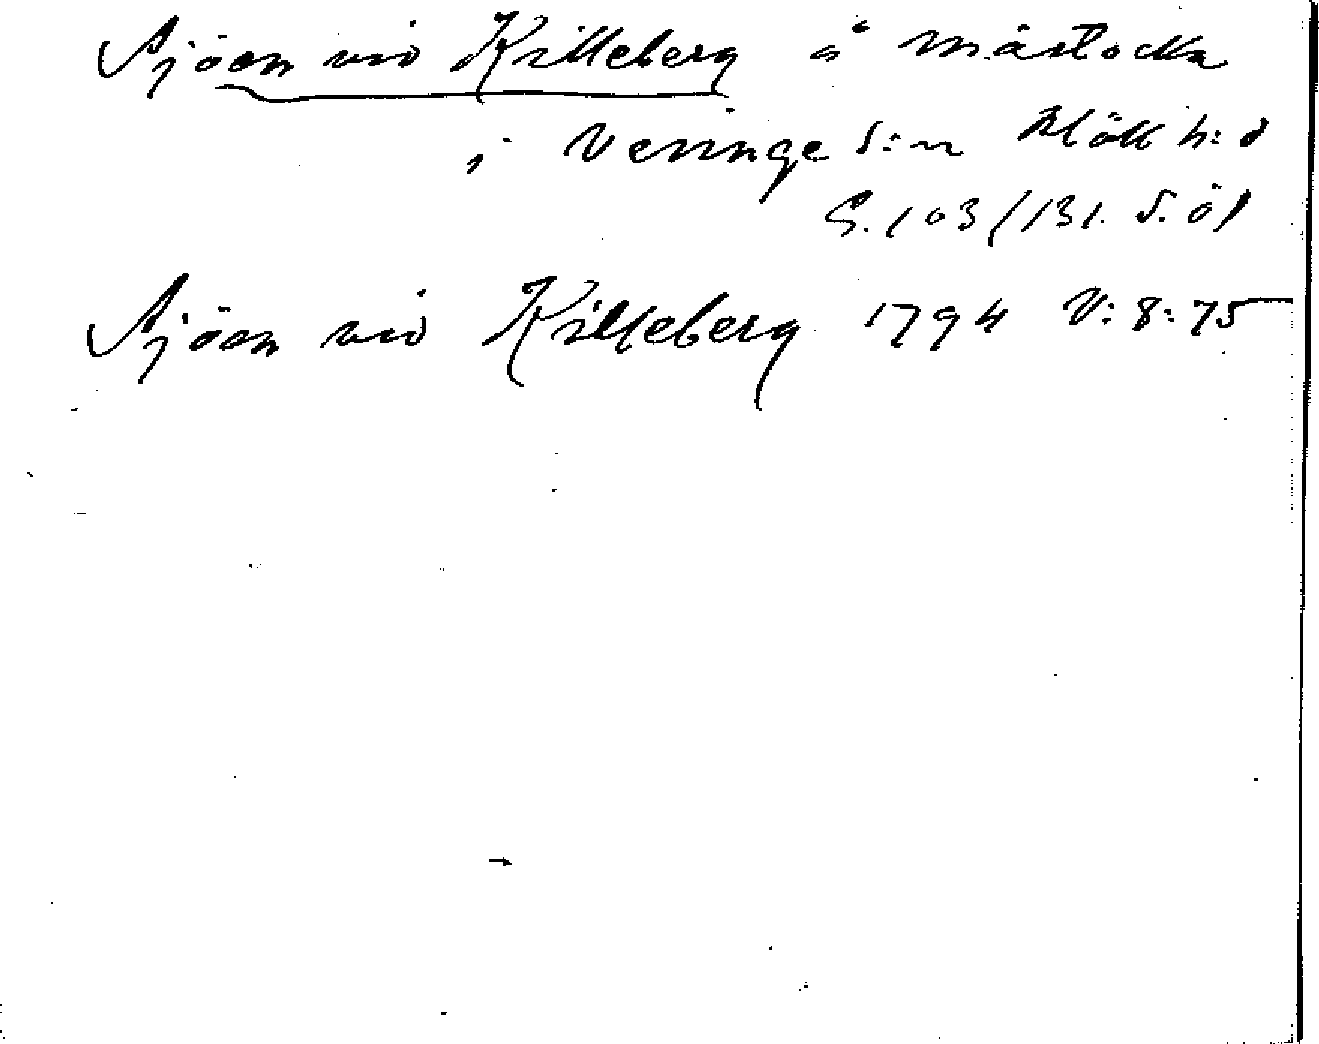 Sjöen vid Killeberg å Måstocka
i Veinge s:n Höks h:d
G. 103/131. S. öl
Sjöen vid Killeberg 1794 V: 8: 75